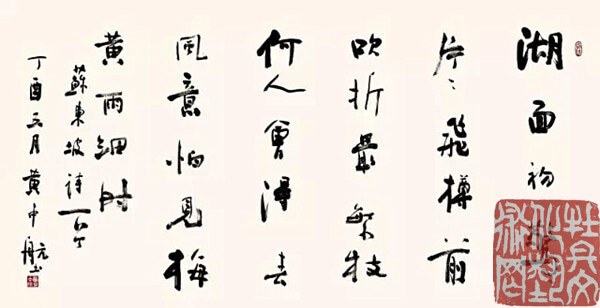 湖面初
片〻飛樽前
吹折最繁枝
何人會得春
風意怕見梅
黄雨細时
蘇東坡詩一首
丁酉三月黄中航书